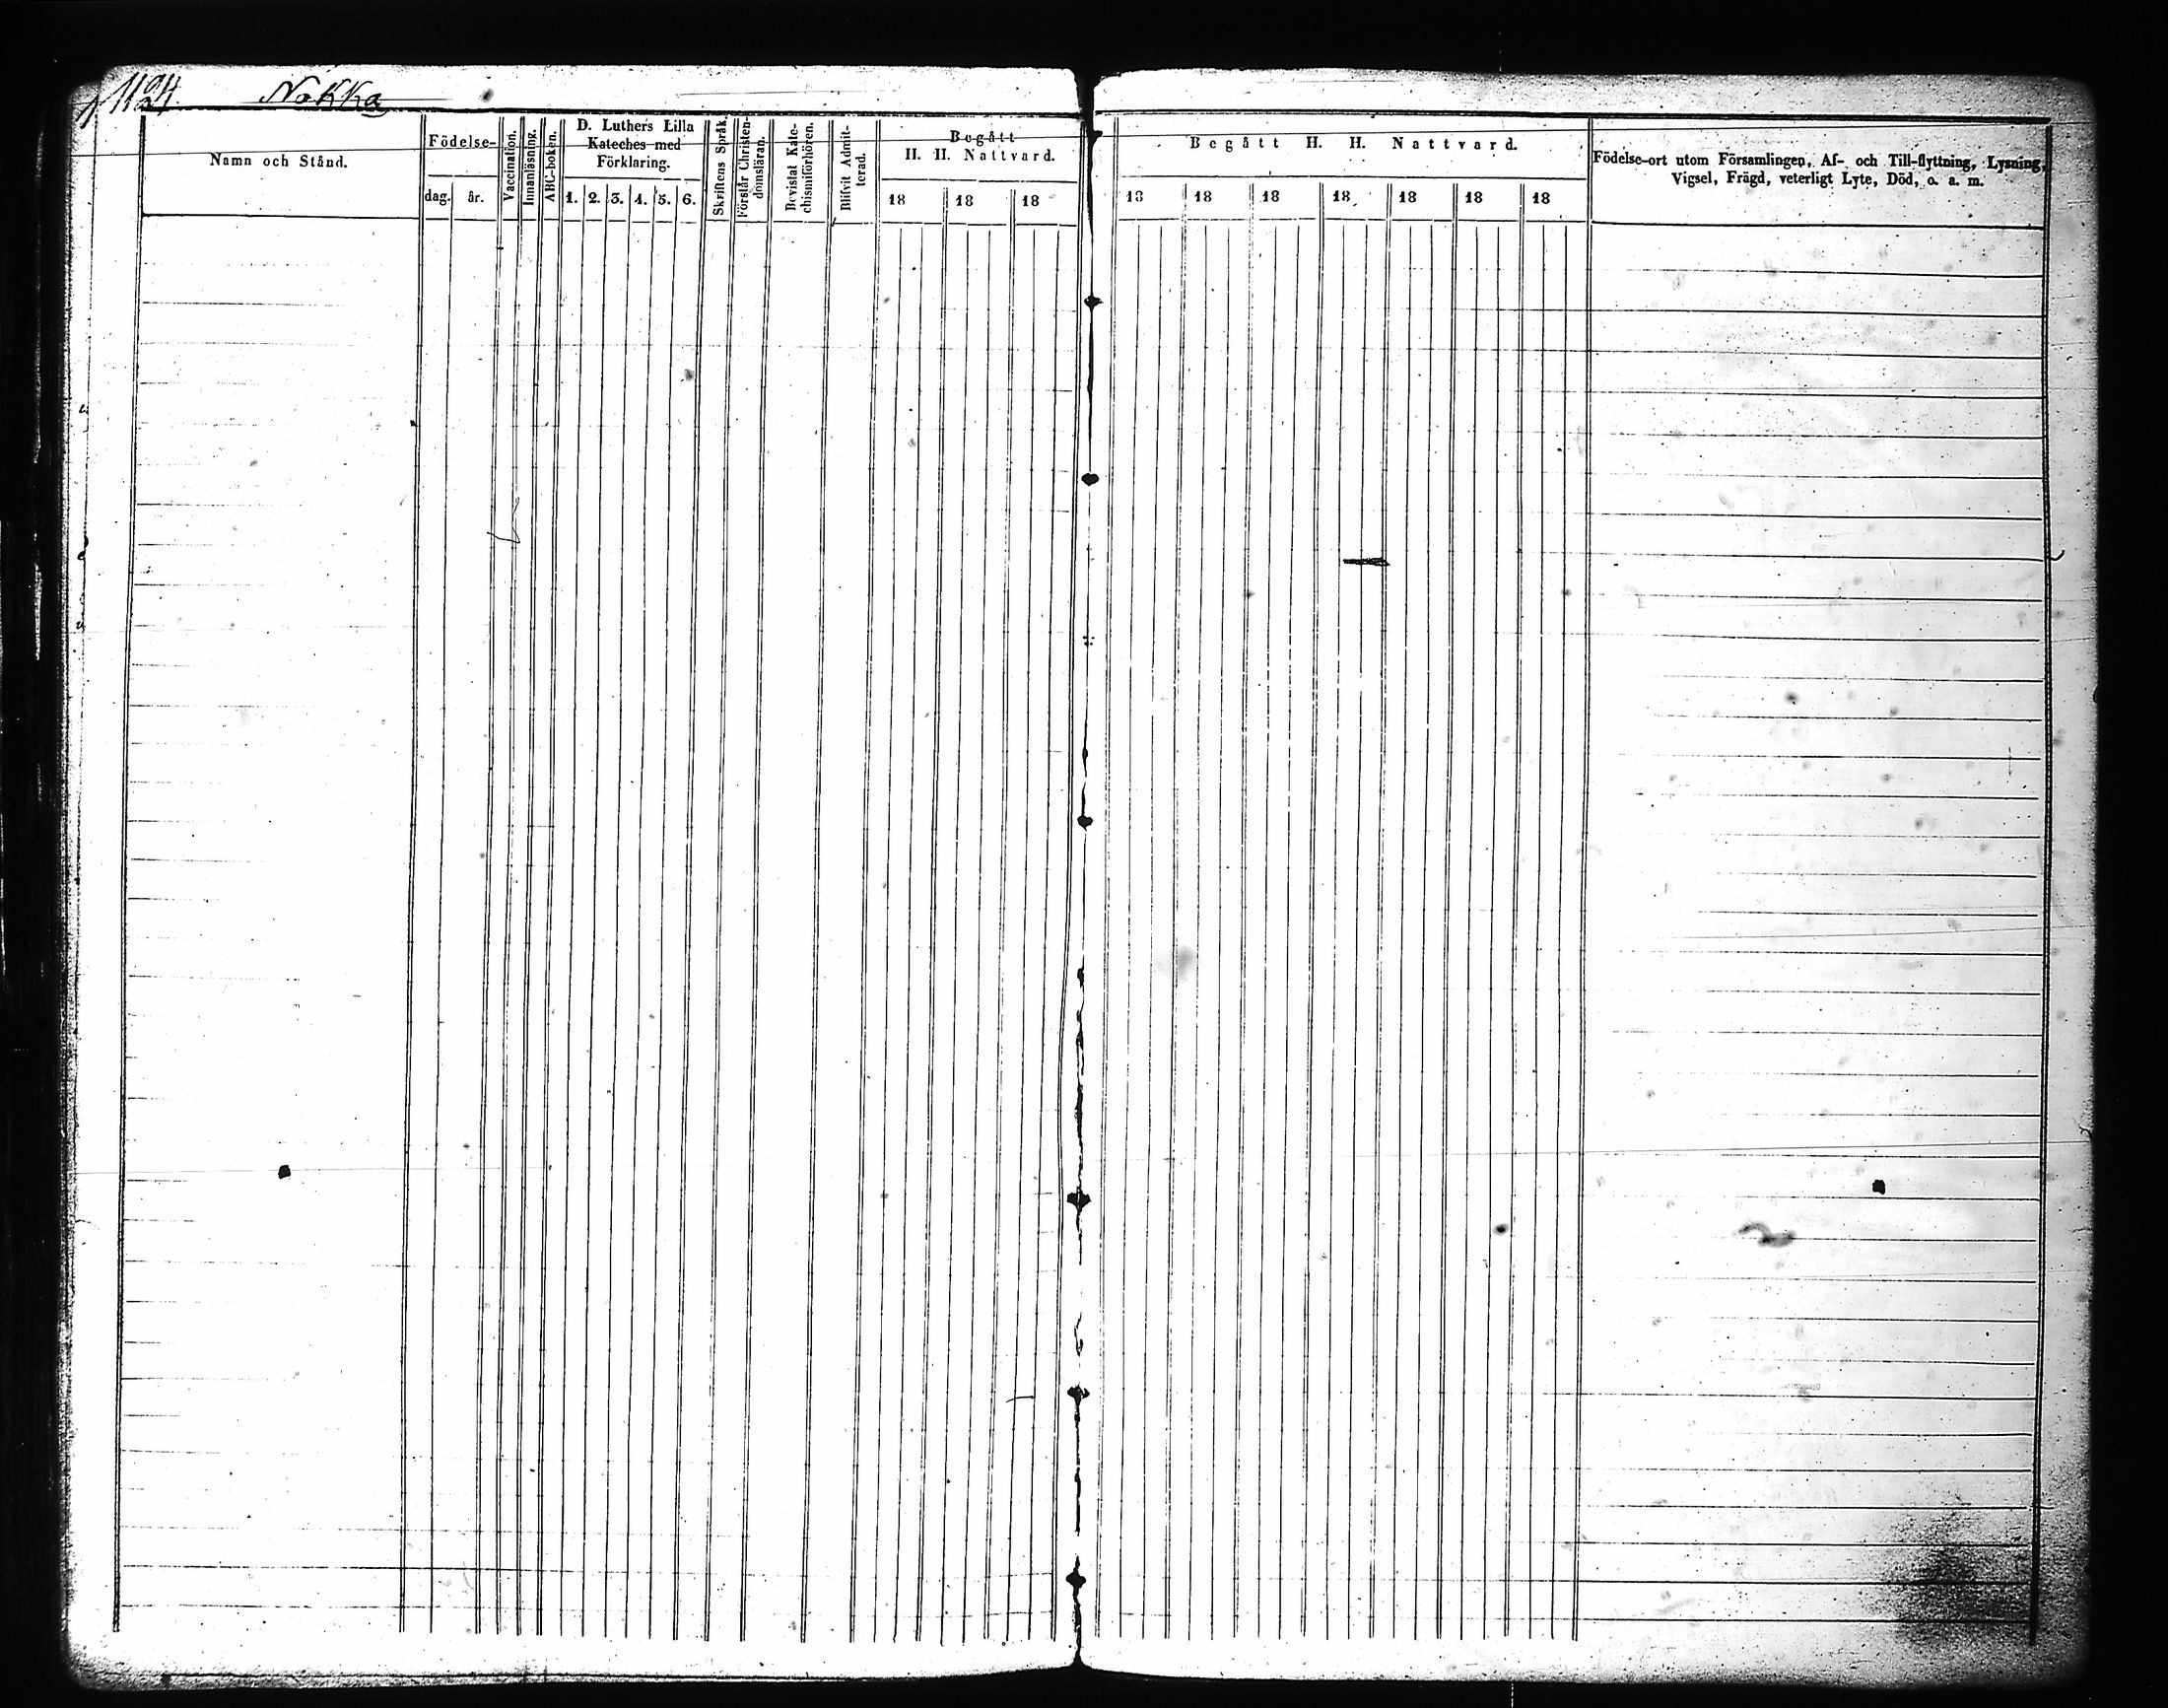 1124. Nokka
Namn och Stånd.
Födelse-
dag. år.
Vaccination.
Innanläsning.
ABC-boken.
D. Luthers Lilla
Kateches med
Förklaring.
1. 2. 3. 4. 5. 6.
Skriftens Språk.
Förstår Christen-
domsläran.
Bevistat Kate-
chismiförhören.
Blifvit Admit-
terad.
Begått
H. H. Nattvard.
18 18 18
Begått H. H. Nattvard.
18 18 18 18 18 18 18
Födelse-ort utom Församlingen, Af- och Till-flyttning, Lysning,
Vigsel, Frägd, veterligt Lyte, Död, o. a. m.